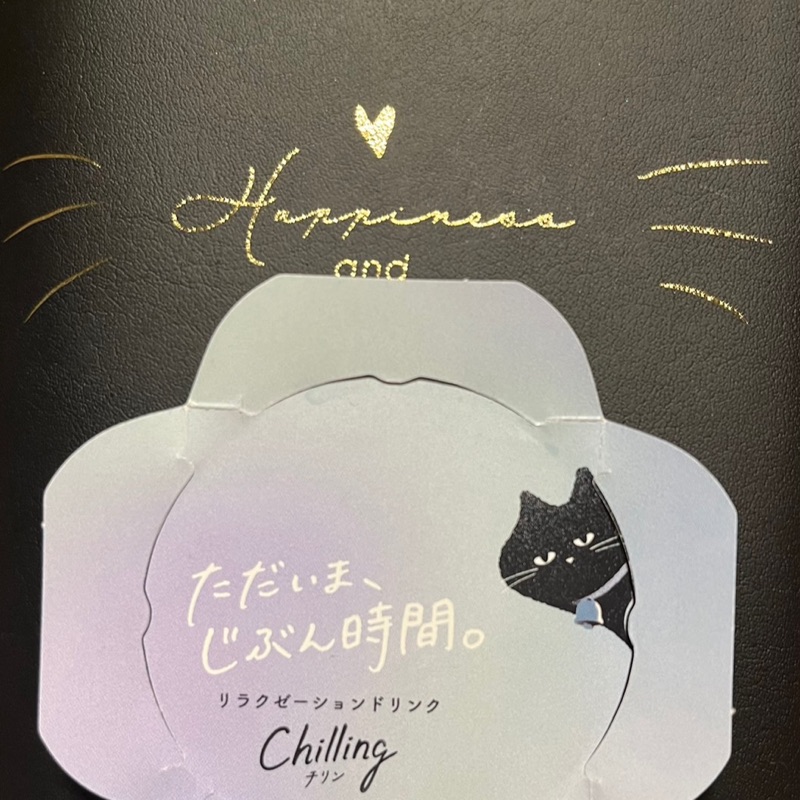 Happiness
and
ただいま、
じぶん時間。
リラクゼーションドリンク
Chilling
チリン